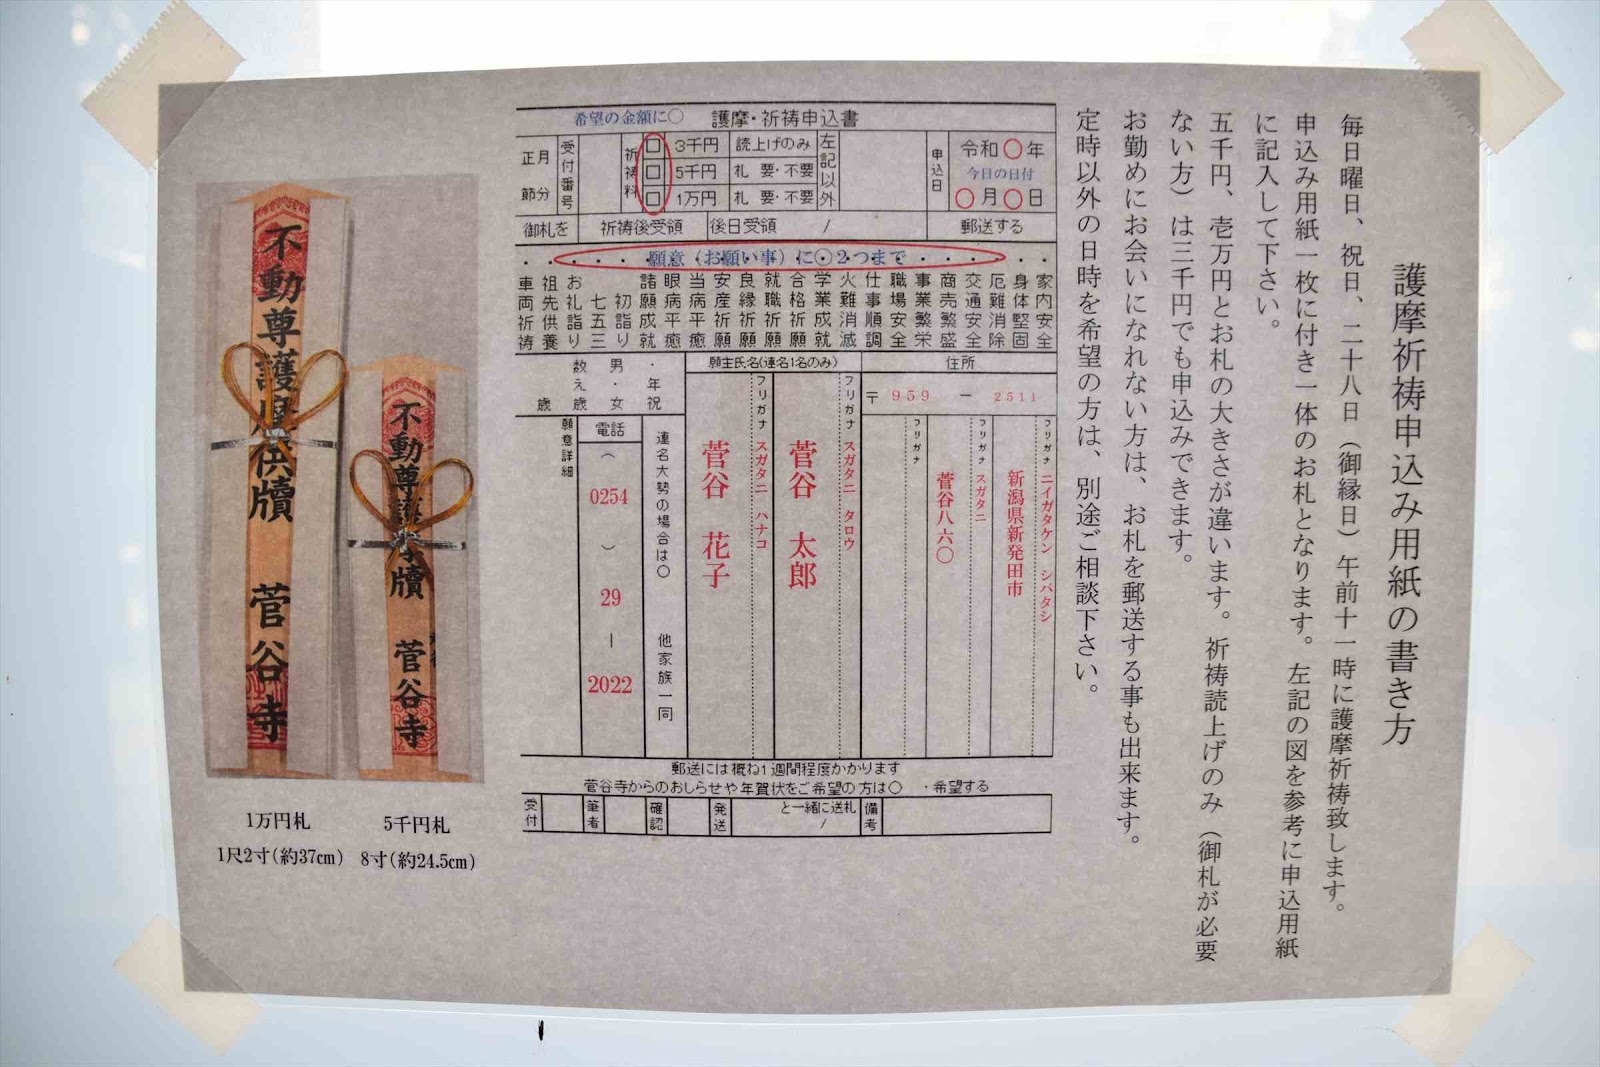 護摩祈祷申込み用紙の書き方
毎日曜日、祝日、二十八日（御縁日）午前十一時に護摩祈祷致します。
申込み用紙一枚に付き一体のお札となります。左記の図を参考に申込用紙
に記入して下さい。
五千円、壱万円とお札の大きさが違います。祈祷読上げのみ（御札が必要
ない方）は三千円でも申込みできます。
お勤めにお会いになれない方は、お札を郵送する事も出来ます。
定時以外の日時を希望の方は、別途ご相談下さい。
希望の金額に〇 護摩・祈祷申込書
正月
節分
受付番号
祈祷料
□ 3千円 読上げのみ
□ 5千円 札 要・不要
□ 1万円 札 要・不要
左記以外
申込日
令和〇年
今日の日付
〇月〇日
御札を 祈祷後受領 後日受領 / 郵送する
願意（お願い事）に〇2つまで
家内安全
身体堅固
厄難消除
交通安全
商売繁盛
事業繁栄
職場安全
仕事順調
火難消滅
学業成就
合格祈願
就職祈願
良縁祈願
安産祈願
当病平癒
眼病平癒
諸願成就
初詣り
七五三
お礼詣り
祖先供養
車両祈祷
住所
〒 959 － 2511
フリガナ ニイガタケン シバタシ
新潟県新発田市
フリガナ スガタニ
菅谷八六〇
フリガナ
願主氏名(連名1名のみ)
フリガナ スガタニ タロウ
菅谷 太郎
フリガナ スガタニ ハナコ
菅谷 花子
・年祝
男・女
数え歳
歳
連名大勢の場合は〇 他家族一同
電話
（0254）29－2022
願意詳細
郵送には概ね1週間程度かかります
菅谷寺からのおしらせや年賀状をご希望の方は〇 ・希望する
受付 筆者 確認 発送 と一緒に送札 / 備考
不動尊護摩供牘 菅谷寺
不動尊護摩牘 菅谷寺
1万円札
1尺2寸(約37cm)
5千円札
8寸(約24.5cm)